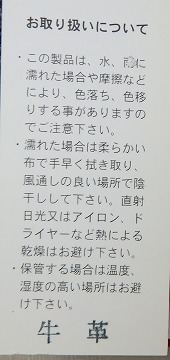 お取り扱いについて
・この製品は、水、雨に
濡れた場合や摩擦など
により、色落ち、色移
りする事がありますの
でご注意下さい。
・濡れた場合は柔らかい
布で手早く拭き取り、
風通しの良い場所で陰
干しして下さい。直射
日光又はアイロン、ド
ライヤーなど熱による
乾燥はお避け下さい。
・保管する場合は温度、
湿度の高い場所はお避
け下さい。
牛革